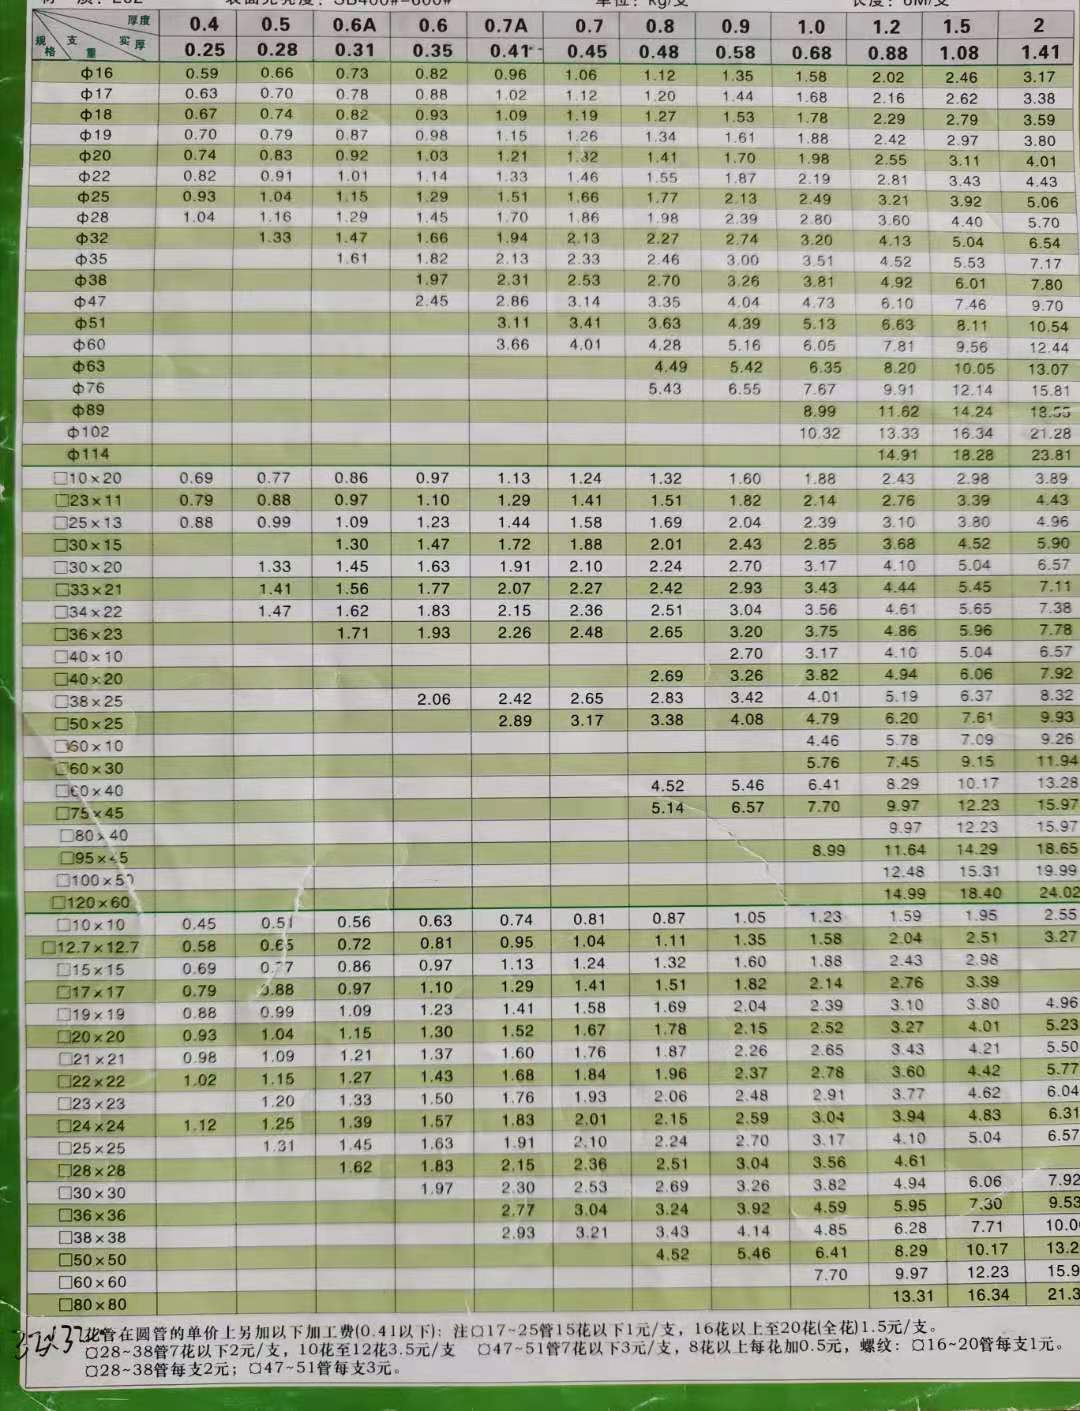 质：202 表面光亮度：SB400#-600# 单位：kg/支 长度：6M/支
厚度 0.4 0.5 0.6A 0.6 0.7A 0.7 0.8 0.9 1.0 1.2 1.5 2
规格 支重 实厚 0.25 0.28 0.31 0.35 0.41 0.45 0.48 0.58 0.68 0.88 1.08 1.41
Φ16 0.59 0.66 0.73 0.82 0.96 1.06 1.12 1.35 1.58 2.02 2.46 3.17
Φ17 0.63 0.70 0.78 0.88 1.02 1.12 1.20 1.44 1.68 2.16 2.62 3.38
Φ18 0.67 0.74 0.82 0.93 1.09 1.19 1.27 1.53 1.78 2.29 2.79 3.59
Φ19 0.70 0.79 0.87 0.98 1.15 1.26 1.34 1.61 1.88 2.42 2.97 3.80
Φ20 0.74 0.83 0.92 1.03 1.21 1.32 1.41 1.70 1.98 2.55 3.11 4.01
Φ22 0.82 0.91 1.01 1.14 1.33 1.46 1.55 1.87 2.19 2.81 3.43 4.43
Φ25 0.93 1.04 1.15 1.29 1.51 1.66 1.77 2.13 2.49 3.21 3.92 5.06
Φ28 1.04 1.16 1.29 1.45 1.70 1.86 1.98 2.39 2.80 3.60 4.40 5.70
Φ32 1.33 1.47 1.66 1.94 2.13 2.27 2.74 3.20 4.13 5.04 6.54
Φ35 1.61 1.82 2.13 2.33 2.46 3.00 3.51 4.52 5.53 7.17
Φ38 1.97 2.31 2.53 2.70 3.26 3.81 4.92 6.01 7.80
Φ47 2.45 2.86 3.14 3.35 4.04 4.73 6.10 7.46 9.70
Φ51 3.11 3.41 3.63 4.39 5.13 6.63 8.11 10.54
Φ60 3.66 4.01 4.28 5.16 6.05 7.81 9.56 12.44
Φ63 4.49 5.42 6.35 8.20 10.05 13.07
Φ76 5.43 6.55 7.67 9.91 12.14 15.81
Φ89 8.99 11.62 14.24
Φ102 10.32 13.33 16.34 21.28
Φ114 14.91 18.28 23.81
□10×20 0.69 0.77 0.86 0.97 1.13 1.24 1.32 1.60 1.88 2.43 2.98 3.89
□23×11 0.79 0.88 0.97 1.10 1.29 1.41 1.51 1.82 2.14 2.76 3.39 4.43
□25×13 0.88 0.99 1.09 1.23 1.44 1.58 1.69 2.04 2.39 3.10 3.80 4.96
□30×15 1.30 1.47 1.72 1.88 2.01 2.43 2.85 3.68 4.52 5.90
□30×20 1.33 1.45 1.63 1.91 2.10 2.24 2.70 3.17 4.10 5.04 6.57
□33×21 1.41 1.56 1.77 2.07 2.27 2.42 2.93 3.43 4.44 5.45 7.11
□34×22 1.47 1.62 1.83 2.15 2.36 2.51 3.04 3.56 4.61 5.65 7.38
□36×23 1.71 1.93 2.26 2.48 2.65 3.20 3.75 4.86 5.96 7.78
□40×10 2.70 3.17 4.10 5.04 6.57
□40×20 2.69 3.26 3.82 4.94 6.06 7.92
□38×25 2.06 2.42 2.65 2.83 3.42 4.01 5.19 6.37 8.32
□50×25 2.89 3.17 3.38 4.08 4.79 6.20 7.61 9.93
□60×10 4.46 5.78 7.09 9.26
□60×30 5.76 7.45 9.15 11.94
□60×40 4.52 5.46 6.41 8.29 10.17 13.28
□75×45 5.14 6.57 7.70 9.97 12.23 15.97
□80×40 9.97 12.23 15.97
□95×45 8.99 11.64 14.29 18.65
□100×50 12.48 15.31 19.99
□120×60 14.99 18.40 24.02
□10×10 0.45 0.51 0.56 0.63 0.74 0.81 0.87 1.05 1.23 1.59 1.95 2.55
□12.7×12.7 0.58 0.65 0.72 0.81 0.95 1.04 1.11 1.35 1.58 2.04 2.51 3.27
□15×15 0.69 0.77 0.86 0.97 1.13 1.24 1.32 1.60 1.88 2.43 2.98
□17×17 0.79 0.88 0.97 1.10 1.29 1.41 1.51 1.82 2.14 2.76 3.39
□19×19 0.88 0.99 1.09 1.23 1.41 1.58 1.69 2.04 2.39 3.10 3.80 4.96
□20×20 0.93 1.04 1.15 1.30 1.52 1.67 1.78 2.15 2.52 3.27 4.01 5.23
□21×21 0.98 1.09 1.21 1.37 1.60 1.76 1.87 2.26 2.65 3.43 4.21 5.50
□22×22 1.02 1.15 1.27 1.43 1.68 1.84 1.96 2.37 2.78 3.60 4.42 5.77
□23×23 1.20 1.33 1.50 1.76 1.93 2.06 2.48 2.91 3.77 4.62 6.04
□24×24 1.12 1.25 1.39 1.57 1.83 2.01 2.15 2.59 3.04 3.94 4.83 6.31
□25×25 1.31 1.45 1.63 1.91 2.10 2.24 2.70 3.17 4.10 5.04 6.57
□28×28 1.62 1.83 2.15 2.36 2.51 3.04 3.56 4.61
□30×30 1.97 2.30 2.53 2.69 3.26 3.82 4.94 6.06 7.92
□36×36 2.77 3.04 3.24 3.92 4.59 5.95 7.30 9.53
□38×38 2.93 3.21 3.43 4.14 4.85 6.28 7.71 10.0
□50×50 4.52 5.46 6.41 8.29 10.17 13.2
□60×60 7.70 9.97 12.23 15.9
□80×80 13.31 16.34 21.3
花管在圆管的单价上另加以下加工费(0.41以下)：注□17~25管15花以下1元/支，16花以上至20花(全花)1.5元/支。
□28~38管7花以下2元/支，10花至12花3.5元/支 □47~51管7花以下3元/支，8花以上每花加0.5元，螺纹：□16~20管每支1元。
□28~38管每支2元；□47~51管每支3元。